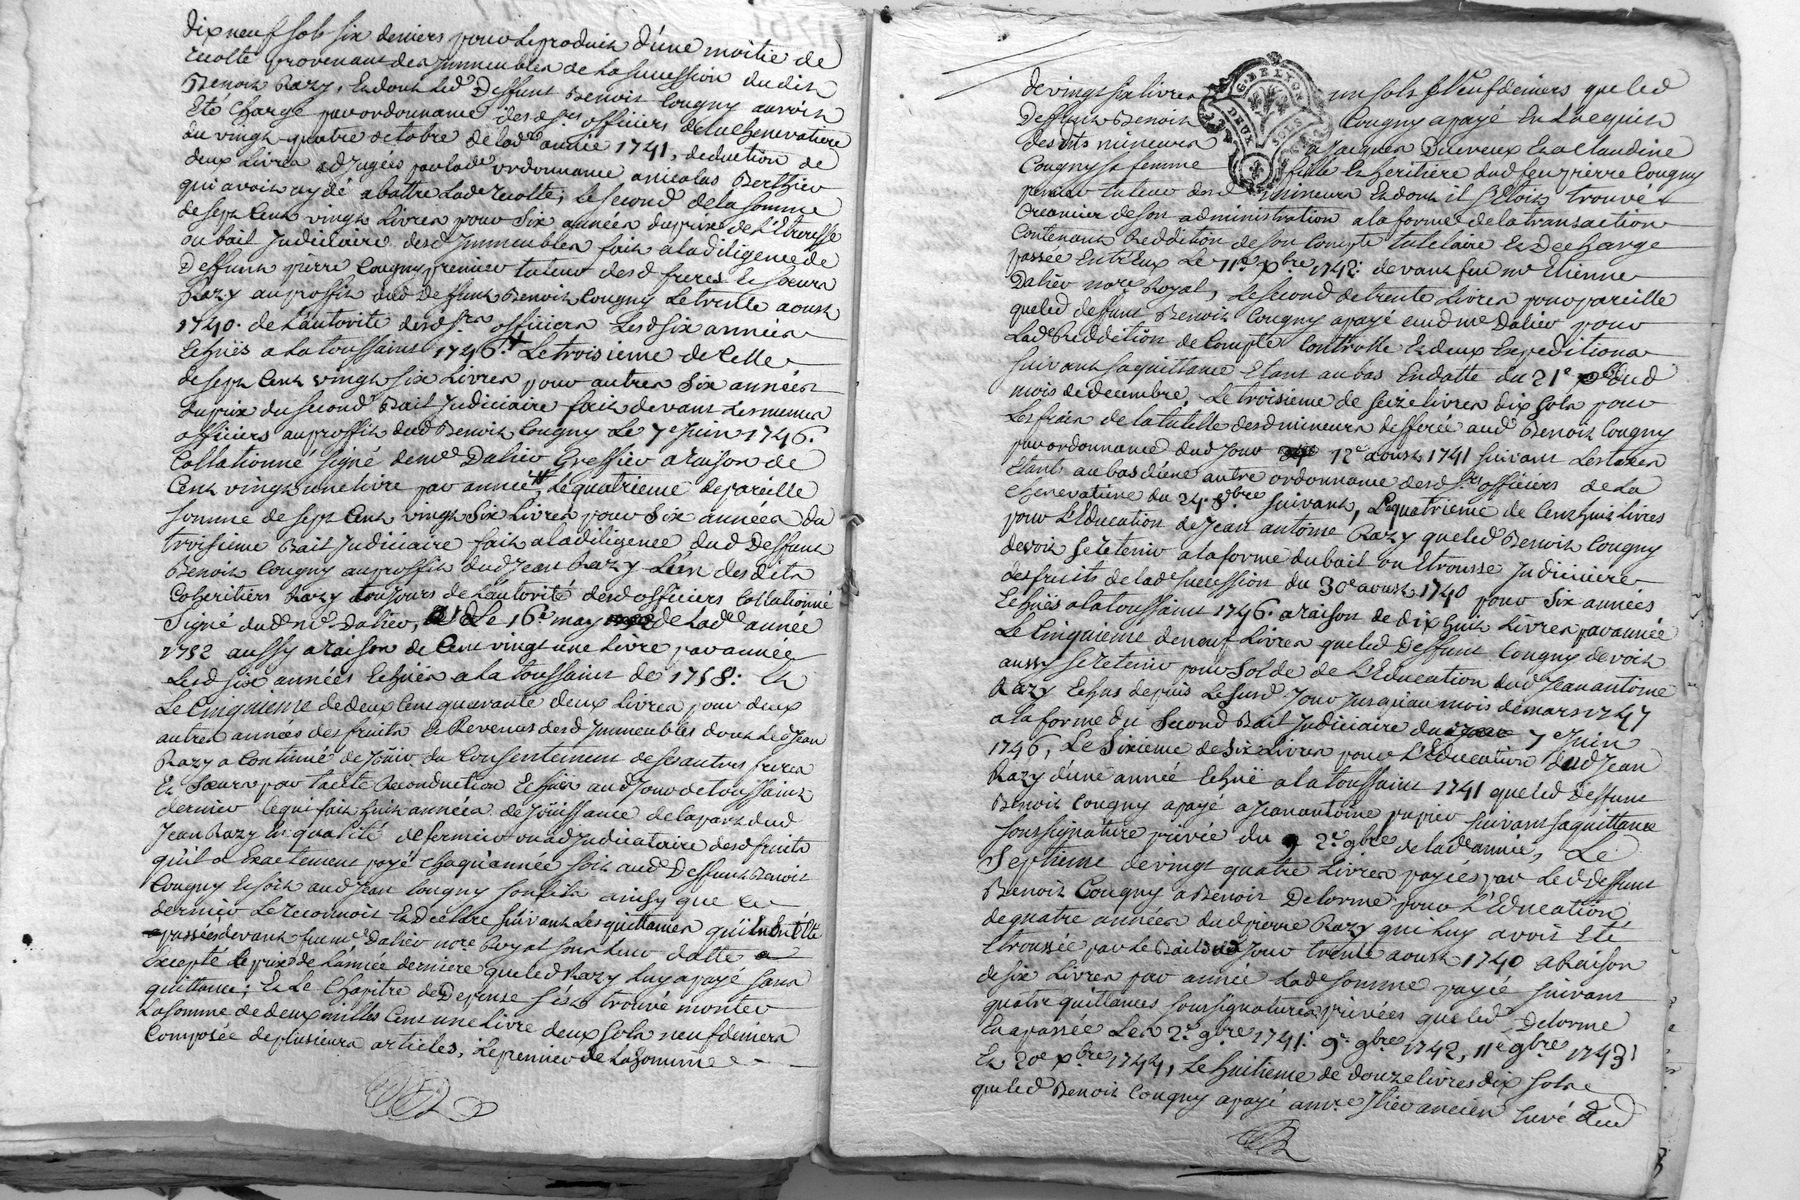 dix neuf sols six deniers pour le produit d'une moitié de
recolte provenant des immeubles de la succession dudit
Benoit Razy, Et dont led. Deffunt Benoit Cougny auroit
Eté Chargé par ordonnance desd. srs officiers de la chenevatiere
du vingt quatre octobre de lad. année 1741, deduction de
deux Livres adjugées par lade ordonnance a nicolas Berthier
qui avoit aydé a battre lade recolte; le second de la somme
de sept Cent vingt Livres pour Six années du prix de l'Etrousse
ou bail Judiciaire desd. Immeubles fait a la diligence de
Deffunt pierre Cougny premier tuteur desd freres Et Sœurs
Razy au proffit dud Deffunt Benoit Cougny Le trente aoust
1740. de l'autorité desd. srs officiers Lesd six années
Echuës a la toussaint 1746. Le troisieme de Celle
de sept Cent vingt six Livres pour autres Six années
du prix du second Bail Judiciaire fait devant Les memes
officiers au proffit dud Benoit Cougny Le 7e Juin 1746.
Collationné signé de me Dalier Greffier a raison de
Cent vingt une livre par année, Le quatrieme de pareille
somme de sept Cent vingt Six Livres pour six années du
troisieme Bail Judiciaire fait a la diligence dud Deffunt
Benoit Cougny au proffit dud Jean Razy L'un desdits
Coheritiers Razy toujours de L'autorité desd officiers Collationné
Signé dud. me. Dalier, Le 16e may de lade année
1752 aussy a raison de Cent vingt une Livre par année
Lesd six années Echuës a la toussaint de 1758: Et
Le Cinquieme de deux Cent quarante deux Livres pour deux
autres années des fruits Et Revenus desd Immeubles dont led Jean
Razy a Continué de Joüir du Consentement de ses autres freres
Et Sœurs par tacite Reconduction Echües aud Jour de toussaint
dernier Ce qui fait huit années de Joüissance de la part dud
Jean Razy En qualité de fermier ou adjudicataire desd fruits
qu'il a Exactement payé Chaqu'année soit aud Deffunt Benoit
Cougny Et soit aud Jean Cougny son fils ainsy que ce
dernier Le reconnoit Et declare suivant Les quittances qu'il en a Eté
passées devant feu me Dalier nore Royal sous Leur datte
Excepté Le prix de L'année derniere que led Razy luy a payé sans
quittance; Et Le Chapitre de Depense s'est trouvé monter
La somme de deux milles Cent une livre deux sols neuf deniers
Composée de plusieurs articles, Le premier de La somme
G. DE LYON
DEUX SOLS
de vingt six livres un sols neuf deniers que led
Deffunt Benoit Cougny a payé En l'acquit
desdits mineurs a Jacques Duvreux Et a Claudine
Cougny sa femme fille Et heritiere dud feu pierre Cougny
premier tuteur desd mineurs Et dont il s'Etoit trouvé
Creancier de son administration a la forme de la transaction
Contenant Reddition de son Compte tutelaire Et Decharge
passée Entr'Eux Le 11e xbre 1742: devant feu me Etienne
Dalier nore Royal, Le second de trente Livres pour pareille
que led defunt Benoit Cougny a payé aud me Dalier pour
Lade Reddition de Compte Controlle Et deux Expeditions
suivant sa quittance Etant au bas En datte du 21e dud
mois de decembre. Le troisieme de seize livres dix sols pour
Les frais de la tutelle desd mineurs defferée aud Benoit Cougny
par ordonnance dud Jour 12e aoust 1741 suivant Les taxes
Etant au bas d'une autre ordonnance desd srs officiers de La
chenevatiere du 24. 8bre suivant, Le quatrieme de Cent huit Livres
pour L'Education de Jean antoine Razy que led Benoit Cougny
devoit se retenir a la forme du bail ou Etrousse Judiciaire
des fruits de lade succession du 30e aoust 1740 pour Six années
Echuës a la toussaint 1746. a raison de dix huit Livres par année
Le Cinquieme de neuf Livres que led Deffunt Cougny devoit
aussy se retenir pour Solde de L'Education dud Jean antoine
Razy Echus depuis Le susd Jour Jusqu'au mois de mars 1747
a la forme du Second Bail Judiciaire du 7e Juin
1746, Le Sixieme de Six Livres pour L'Education dud Jean
Razy d'une année Echuë a la toussaint 1741 que led Deffunt
Benoit Cougny a payé a Jean antoine papier suivant sa quittance
sous signature privée du 2e. 9bre de lade année, Le
Septieme de vingt quatre Livres payées par Led Deffunt
Benoit Cougny a Benoit Delorme pour L'Education
de quatre années dud pierre Razy que luy avoit Eté
Etroussée par Le Bail dud Jour trente aoust 1740 a Raison
de six Livres par année Lade somme payée suivant
quatre quittances sous signatures privées que led Delorme
En a passée Les 2e. 9bre 1741. 9e 9bre 1742, 11e 9bre 1743
Et 20e xbre 1744, Le huitieme de douze livres dix sols
que led Benoit Cougny a payé a mre Thier ancien Curé dud